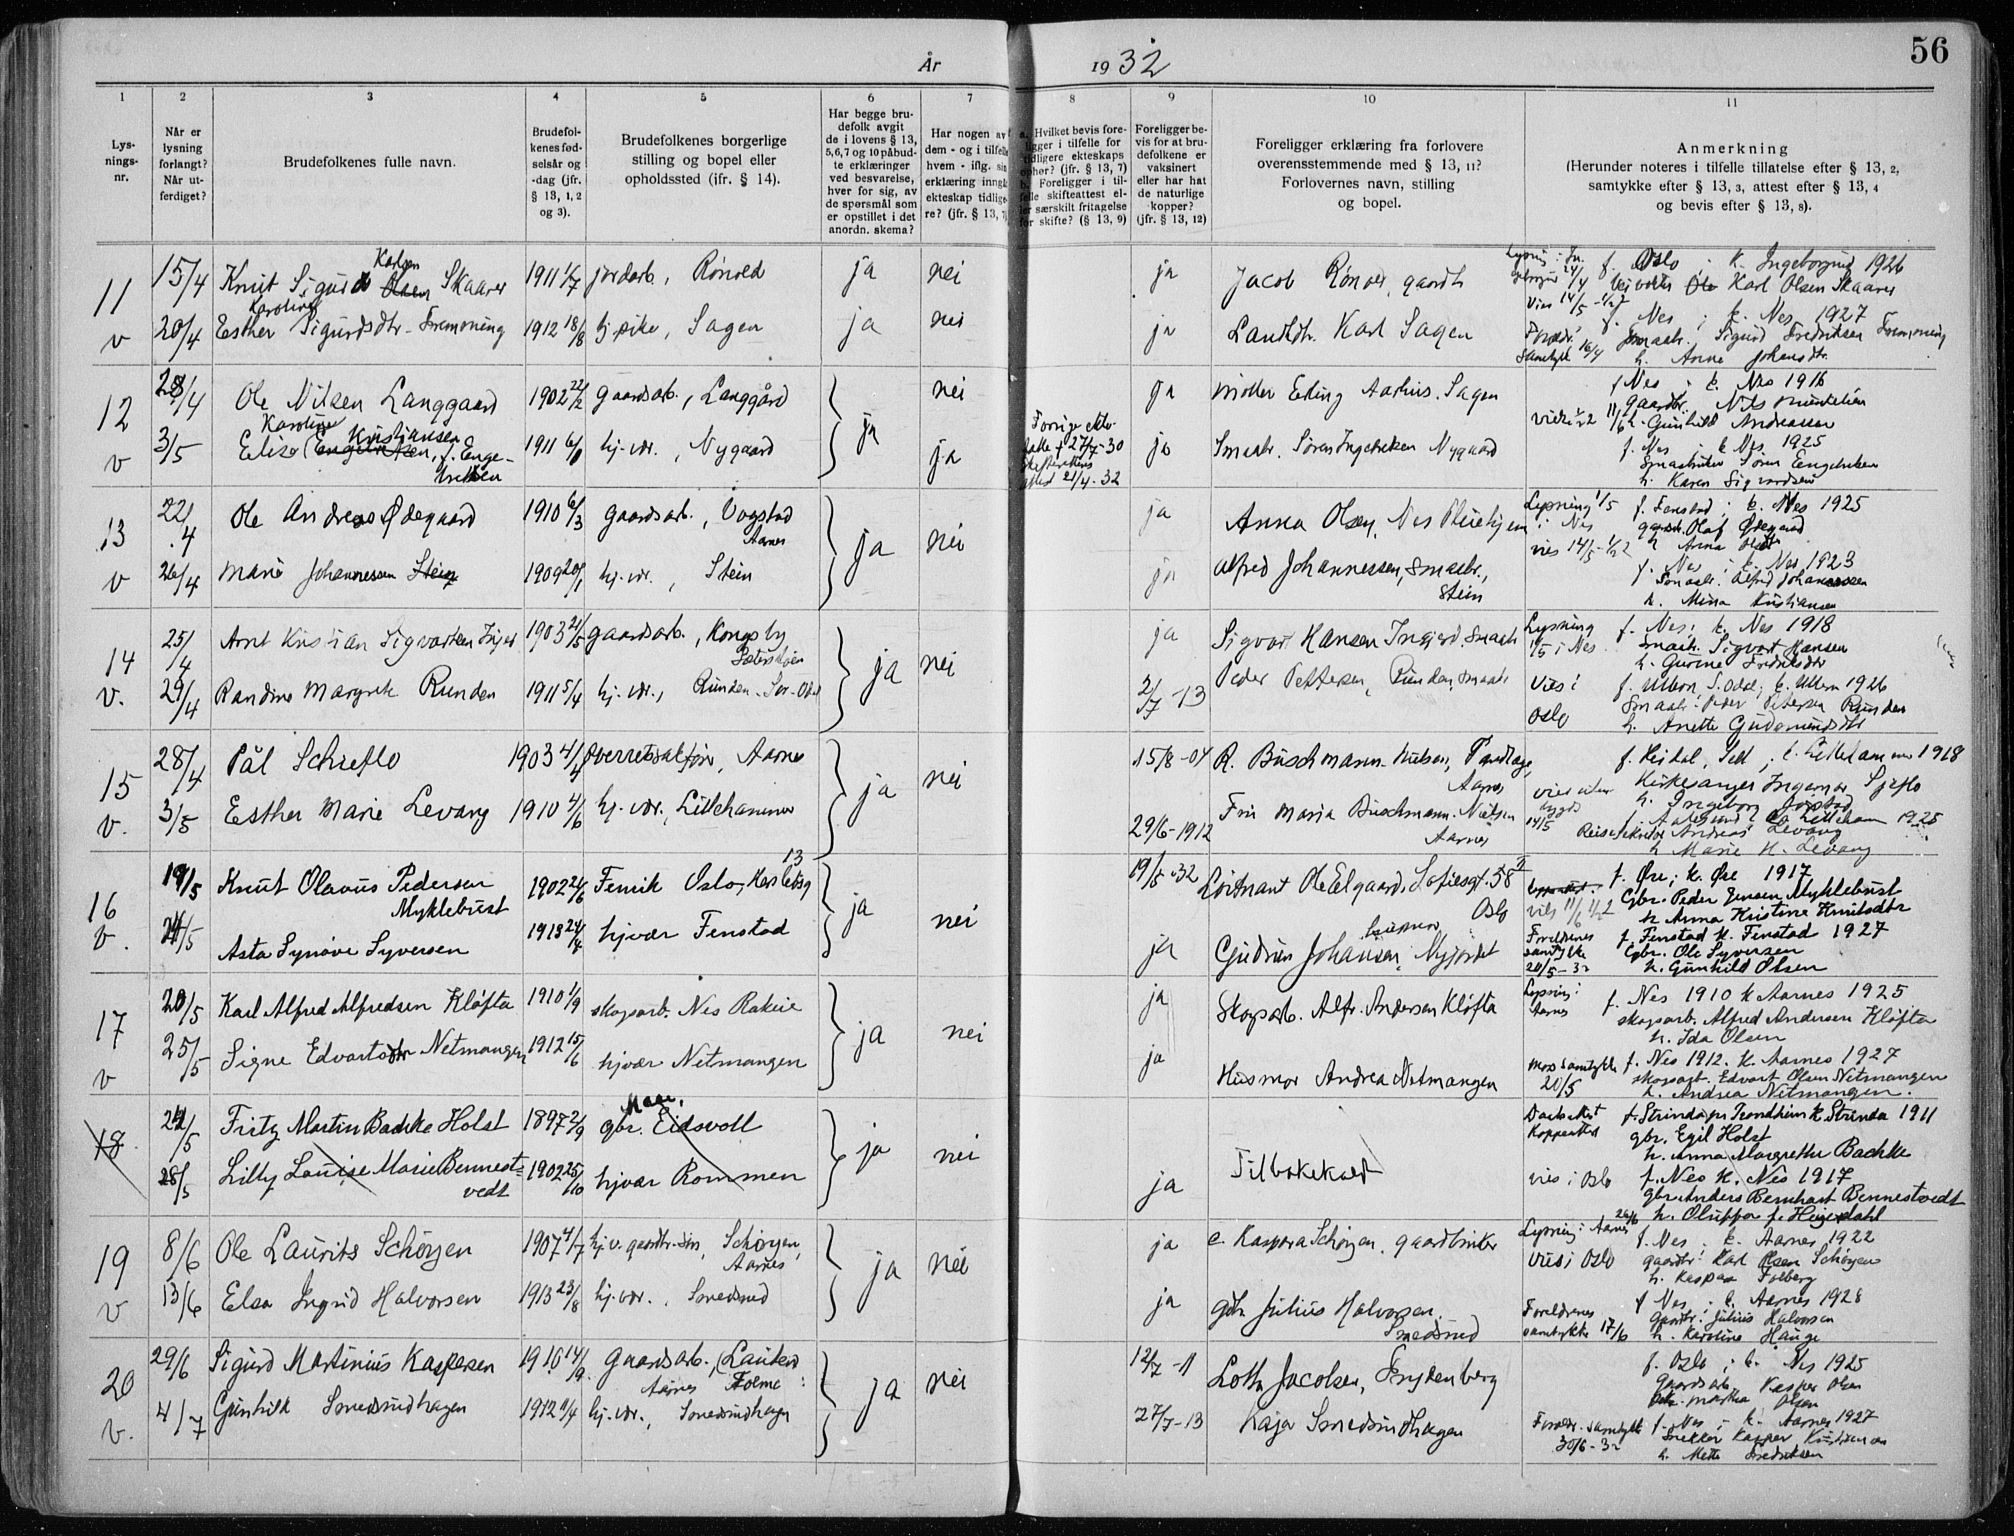 56
År 1932
1 2 3 4 5 6 7 8 9 10 11
Lys-
nings-
nr.
Når er
lysning
forlangt?
Når ut-
ferdiget?
Brudefolkenes fulle navn.
Brudefol-
kenes fød-
selsår og
-dag (jfr.
§ 13, 1, 2
og 3).
Brudefolkenes borgerlige
stilling og bopel eller
opholdssted (ifr. § 14).
Har begge bru-
defolk avgit
de i lovens § 13,
5, 6, 7 og 10 påbud-
te erklæringer
ved besvarelse,
hver for sig, av
de spørsmål som
er opstillet i det
anordn. skema?
Har nogen av
dem - og i tilfelle
hvem - iflg. sin
erklæring inngå
ekteskap tidlige-
re? (jfr. § 13, 7)
a. Hvilket bevis fore-
ligger i tilfelle for
tidligere ekteskaps
opher? (jfr. § 13, 7)
b. Foreligger i til-
felle skifteattest el-
ler særskilt fritagelse
for skifte? (§ 13, 9)
Foreligger be-
vis for at bru-
defolkene er
vaksinert
eller har hat
de naturlige
kopper?
(jfr. § 13, 12)
Foreligger erklæring fra forlovere
overensstemmende med § 13, 11?
Forlovernes navn, stilling
og bopel.
Anmerkning
(Herunder noteres i tilfelle tillatelse efter § 13, 2,
samtykke efter § 13, 3, attest efter § 13, 4
og bevis efter § 13, 8).
11 15/4 Knut Sigurd Olsen Karlsen Skaarer 1911 1/7 jordarb., Rønold ja nei ja Jacob Rønold, gaardbr. f. Oslo; k. Ingeborgrud 1926
Karl Olsen Skaarer
v 20/4 Esther Karoline Sigurdsdtr. Fremoning 1912 18/8 hj. pike, Sagen ja nei ja Landh. Karl Sagen f. Nes; k. Nes 1927
Vies 14/5
Samtykke 16/4 Sigurd Fredriksen Fremoning
h. Anna Johansdtr.
12 28/4 Ole Nilsen Langgaard 1902 22/2 gaardsarb., Langgård ja nei ja Møller Erling Aarhus. Sagen f Nes; k. Nes 1916
gaardbr. Nils Mikkelsen
h. Gunhild Andreassen
v 3/5 Elise Karoline Kristiansen Engebretsen, f. Enge-
bretsen 1911 6/1 hj. vr., Nygaard ja
Forrige ekte-
felle † 27/7-30
Skifterettens
attest 21/4-32
ja Smaabr. Søren Ingebretsen Nygaard f. Nes k Nes 1925
Smaabruker Søren Engebretsen
h. Karen Sigvardsen
13 22/4 Ole Andreas Ødegaard 1910 6/3 gaardsarb., Vogstad
Aarnes ja nei ja Anna Olsen, Nes Pleiehjem Lysning 1/5
i Nes f. Fenstad; k. Nes 1925
gaardbr. Olaf Ødegaard
h Anna Olsdtr
v 26/4 Marie Johannessen Stein 1909 20/1 hj. vr., Stein ja Alfred Johannessen, Smaabr.,
Stein vies 14/5 - 1/2 2 f. Nes; k. Nes 1923
Smaabr. Alfred Johannessen
h. Mina Kristiansen
14 25/4 Arnt Kristian Sigvartsen Injer 1903 21/5 gaardsarb., Kongsby ja nei ja Sigvart Hansen Ingjerd. Smaabr Lysning
1/5 i Nes f. Nes; k. Nes 1918
Smaabr. Sigvart Hansen
h. Gurine Fredriksdtr
v. 29/4 Randine Margrete Runden 1911 5/4 hj. vr., Runden Sør-Odal 2/7 -13 Peder Pettersen, Runden, Smaabr Vies i
Oslo f. Ullern, S. Odal; k. Ullern 1926
Smaabr. Peder Petersen Runden
h. Anette Gudmundsdtr
15 28/4 Pål Schieflo 1903 4/4 Overretssakfører, Aarnes ja nei 15/8-04 R. Buschmann-Nielsen, Tandlæge,
Aarnes f. Heidal, Sell; k. Lillehammer 1918
Kirkesanger Ingemar Sjeflo
h. Ingeborg Jorstad
v. 3/5 Esther Marie Levang 1910 4/6 hj. vr., Lillehammer 29/6-1912 Fru Maria Buschmann-Nielsen
Aarnes vies uten
bygds
14/5 f. Aalesund k. Lilleham 1925
Reisesekretær Andreas Levang
h Marie K. Levang
16 19/5 Knut Olavus Pedersen
Myklebust 1902 2/6 Fenrik Oslo, Karlsborg 13 ja nei 19/5-32 Løitnant Ole Elgaard, Sofiesgt. 58 II
Oslo vies 11/6 1/2 2 f. Øre; k. Øre 1917
Gbr. Peder Jensen Myklebust
h Anna Kristine Knutsdtr
v. 24/5 Asta Synøve Syversen 1913 24/4 hjvær Fenstad ja Gudrun Johansen, husmor Nyjordet Foreldrenes
samtykke
20/5-32 f. Fenstad k. Fenstad 1927
Gbr. Ole Syversen
h. Gunhild Olsen
17 20/5 Karl Alfred Alfredsen Kløfta 1910 1/9 skogsarb. Nes Rakeie ja nei ja Skogsarb. Alfr. Andersen Kløfta Lysning i
Aarnes f. Nes 1910 k Aarnes 1925
skogsarb. Alfred Andersen Kløfta
h. Ida Olsen
v 25/5 Signe Edvartsdtr Netmangen 1912 15/6 hjvær Netmangen ja Husmor Andrea Netmangen Mors samtykke
20/5 f. Nes 1912. k. Aarnes 1927
skogsarb. Edvart Olsen Netmangen
h. Andrea Netmangen.
18 21/5 Fritz Martin Bachke Holst 1897 2/9 gbr. Eidsvoll ja nei Tilbakekalt Daabsattest
Koppeattest f. Strinda pr Trondheim k. Strinda 1911
gbr. Egil Holst
h. Anna Margrethe Bachke
28/5 Lilly Louise Marie Bennest-
vedt 1902 25/10 hjvær Rommen ja vies i Oslo f. Nes k. Nes 1917
gbr. Anders Bernhart Bennestvedt
h. Oluffa f. Heigerdahl
19 8/6 Ole Laurits Schøyen 1907 4/7 hj. v. gaardbr. søn, Schøyen,
Aarnes ja nei ja e. Kaspara Schøyen, gaardbruker Lysning i Aarnes 26/6
vies i Oslo f. Nes; k. Aarnes 1922
gaardbr. Karl Olsen Schøyen
h. Kaspara Folberg
v 13/6 Elsa Ingrid Halvorsen 1913 23/8 hj. vr., Smedsrud ja gbr. Julius Halvorsen
Smedsrud Foreldrenes
samtykke 17/6 f Nes; k. Aarnes 1928
gaardbr. Julius Halvorsen
h. Karoline Hauge
20 29/6 Sigurd Martinius Kaspersen 1910 14/9 Gaardsarb.,
Aarnes Holme ja nei 12/7-11 Lotta Jacobsen, Frydenberg f. Oslo; k. Nes 1925
gaardsarb. Kasper Olsen
Martha Olsen
v. 4/7 Gunhild Smedsrudhagen 1912 1/4 hj. vr., Smedsrudhagen 27/7-13 Kaja Smedsrudhagen Foreldr. samtykke
30/6-32 f. Nes; k. Aarnes 1927
Snekker Kasper Kristiansen
h. Mette Fredriksen